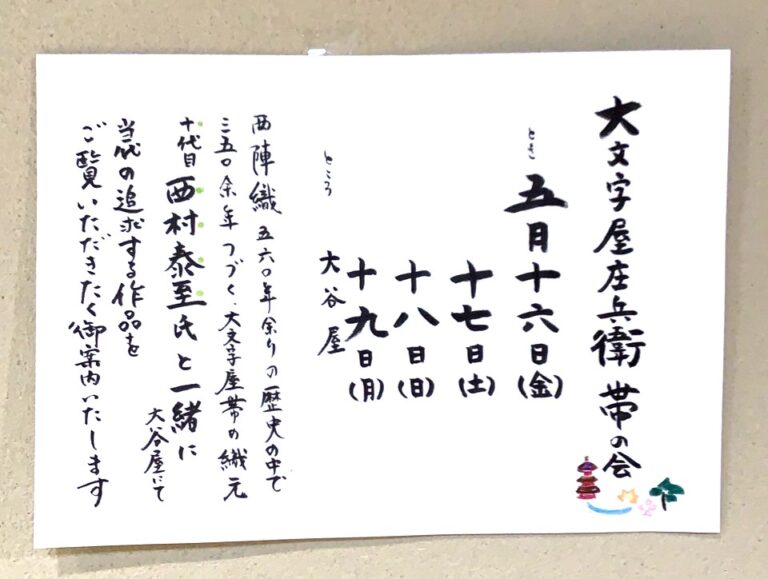 大文字屋庄兵衛 帯の会
とき 五月十六日(金)
十七日(土)
十八日(日)
十九日(月)
ところ 大谷屋
西陣織 五六〇年余りの歴史の中で
三五〇余年つづく、大文字屋帯の織元
十代目 西村泰至氏と一緒に
大谷屋にて
当代の追求する作品を
ご覧いただきたく御案内いたします